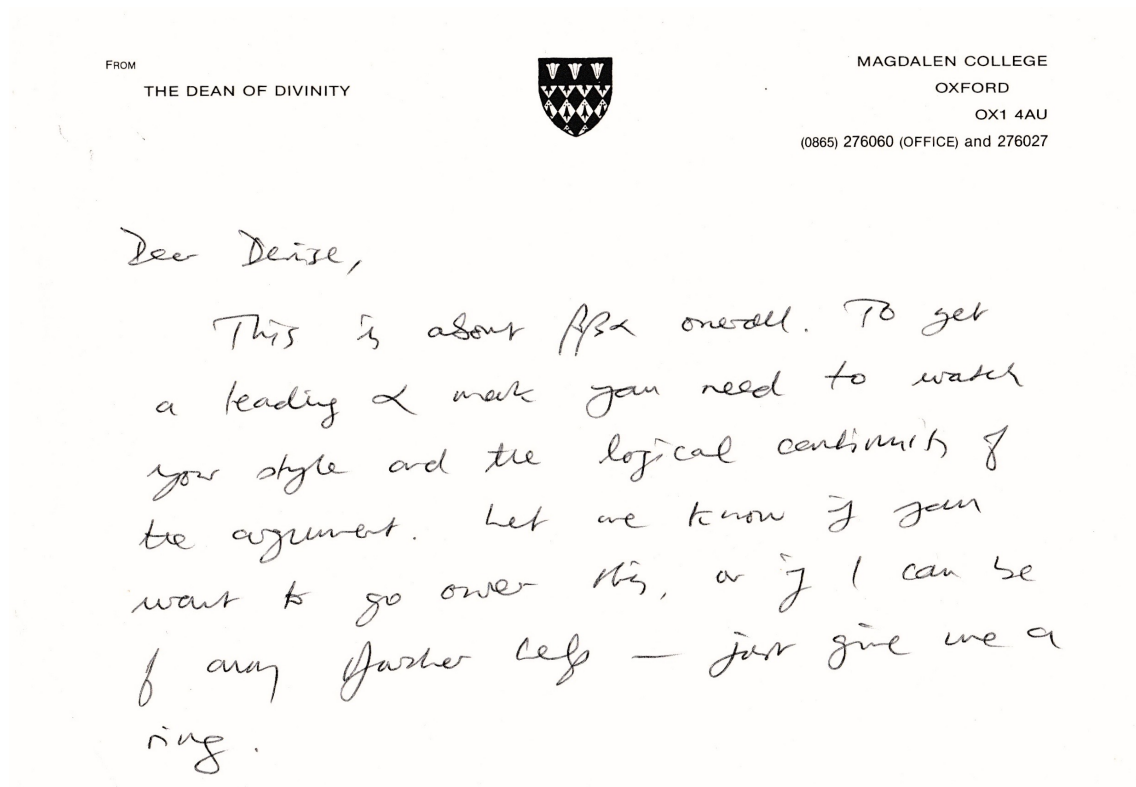 FROM
THE DEAN OF DIVINITY
MAGDALEN COLLEGE
OXFORD
OX1 4AU
(0865) 276060 (OFFICE) and 276027
Dear Denise,
This is about ββα overall. To get
a leading α mark you need to watch
your style and the logical continuity of
the argument. Let me know if you
want to go over this, or if I can be
of any further help — just give me a
ring.